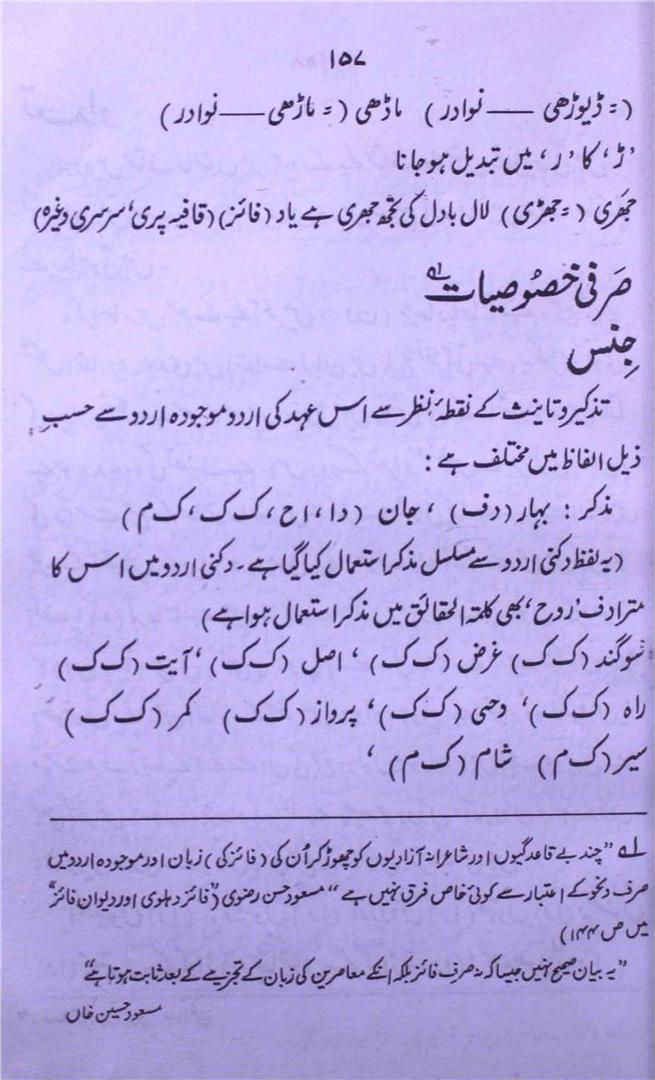 ۱۵۷
(= ڈیوڑھی —— نوادر) ماڈھی (= ماڑھی —— نوادر)
’ڑ‘ کا ’ر‘ میں تبدیل ہوجانا
جھری (= جھڑی) لال بادل کی کچھ جھری ہے یاد (فائز) (قافیہ پری‘ سرسری وغیرہ)
صَرفی خصُوصیات لے
جِنس
تذکیر و تانیث کے نقطۂ نظر سے اس عہد کی اردو موجودہ اردو سے حسبِ
ذیل الفاظ میں مختلف ہے :
مذکر : بہار (د ف) ، جان (د ا ، ا ح ، ک ک ، ک م)
(یہ لفظ دکنی اردو سے مسلسل مذکر استعمال کیا گیا ہے ۔ دکنی اردو میں اس کا
مترادف ’روح‘ بھی کلمتہ الحقائق میں مذکر استعمال ہوا ہے)
سوگند (ک ک) غرض (ک ک) ، اصل (ک ک) ، آیت (ک ک)
راہ (ک ک) ، وحی (ک ک) ، پرواز (ک ک) کمر (ک ک)
سیر (ک م) شام (ک م) ،
لے ”چند بے قاعدگیوں اور شاعرانہ آزادیوں کو چھوڑ کر اُن کی (فائز کی) زبان اور موجودہ اردو میں
صرف و نحو کے اعتبار سے کوئی خاص فرق نہیں ہے“ مسعود حسن رضوی (”فائز دہلوی اور دیوان فائز“
میں ص ۱۴۴)
”یہ بیان صحیح نہیں جیسا کہ نہ صرف فائز بلکہ انکے معاصرین کی زبان کے تجزیے کے بعد ثابت ہوتا ہے“
مسعود حسین خاں